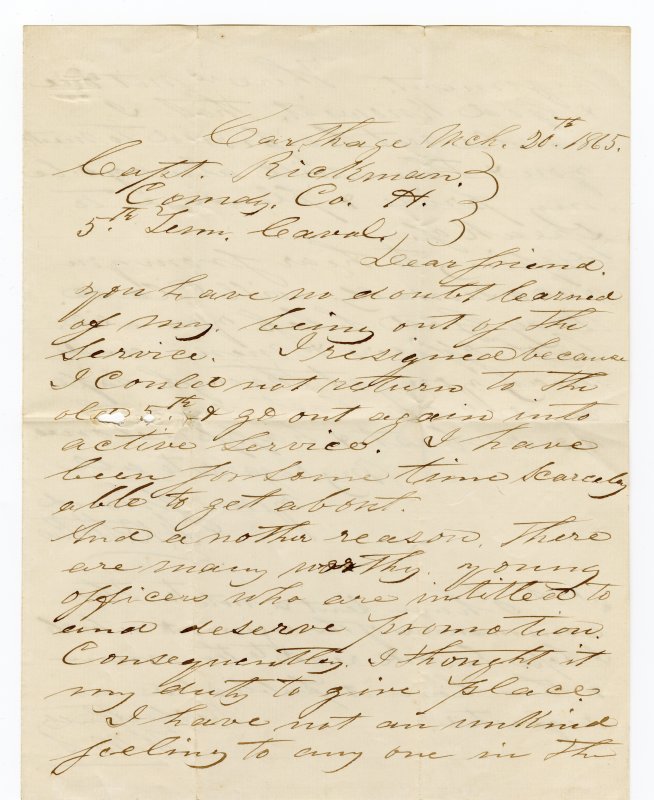 Carthage Mch. 20th 1865.
Capt. Rickman.
Comdg. Co. H.
5th Tenn. Caval.
Dear friend.
you have no doubt learned
of my being out of the
Service. I resigned because
I could not return to the
old 5th & go out again into
active service. I have
been for some time scarcely
able to get about.
And another reason, there
are many worthy young
officers who are intitled to
and deserve promotion.
Consequently I thought it
my duty to give place
I have not an unkind
feeling to any one in the